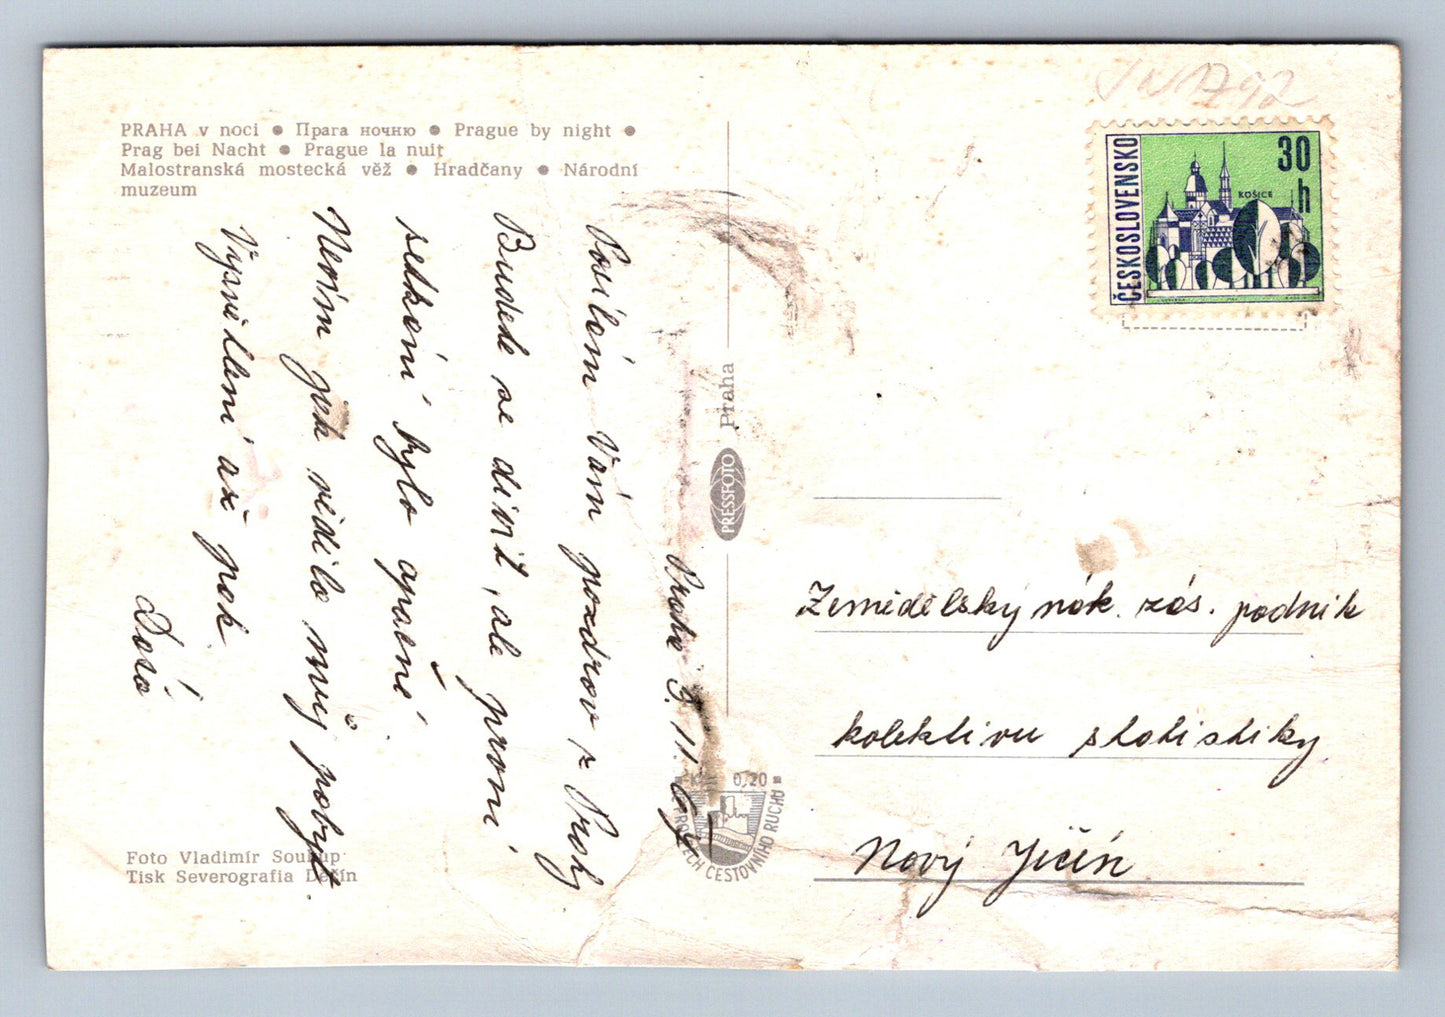 PRAHA v noci ● Прага ночью ● Prague by night ●
Prag bei Nacht ● Prague la nuit
Malostranská mostecká věž ● Hradčany ● Národní
muzeum
Praha 9. 11.
Posílám Vám pozdrav z Prahy
Budete se divit, ale první
setkání bylo opačné
Nevím jak vidilo můj pobyt.
Vysvětlení až pak
Dáša
Foto Vladimír Soukup
Tisk Severografia Děčín
PRESSFOTO Praha
Kčs 0,20
PROSPĚCH CESTOVNÍHO RUCHU
ČESKOSLOVENSKO
30 h
KOŠICE
Zemědělský nák. zás. podnik
kolektivu statistiky
Nový Jičín